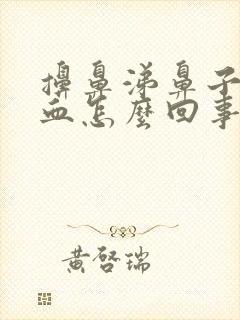 擤鼻涕鼻子
血怎麼回事
黃啓瑞